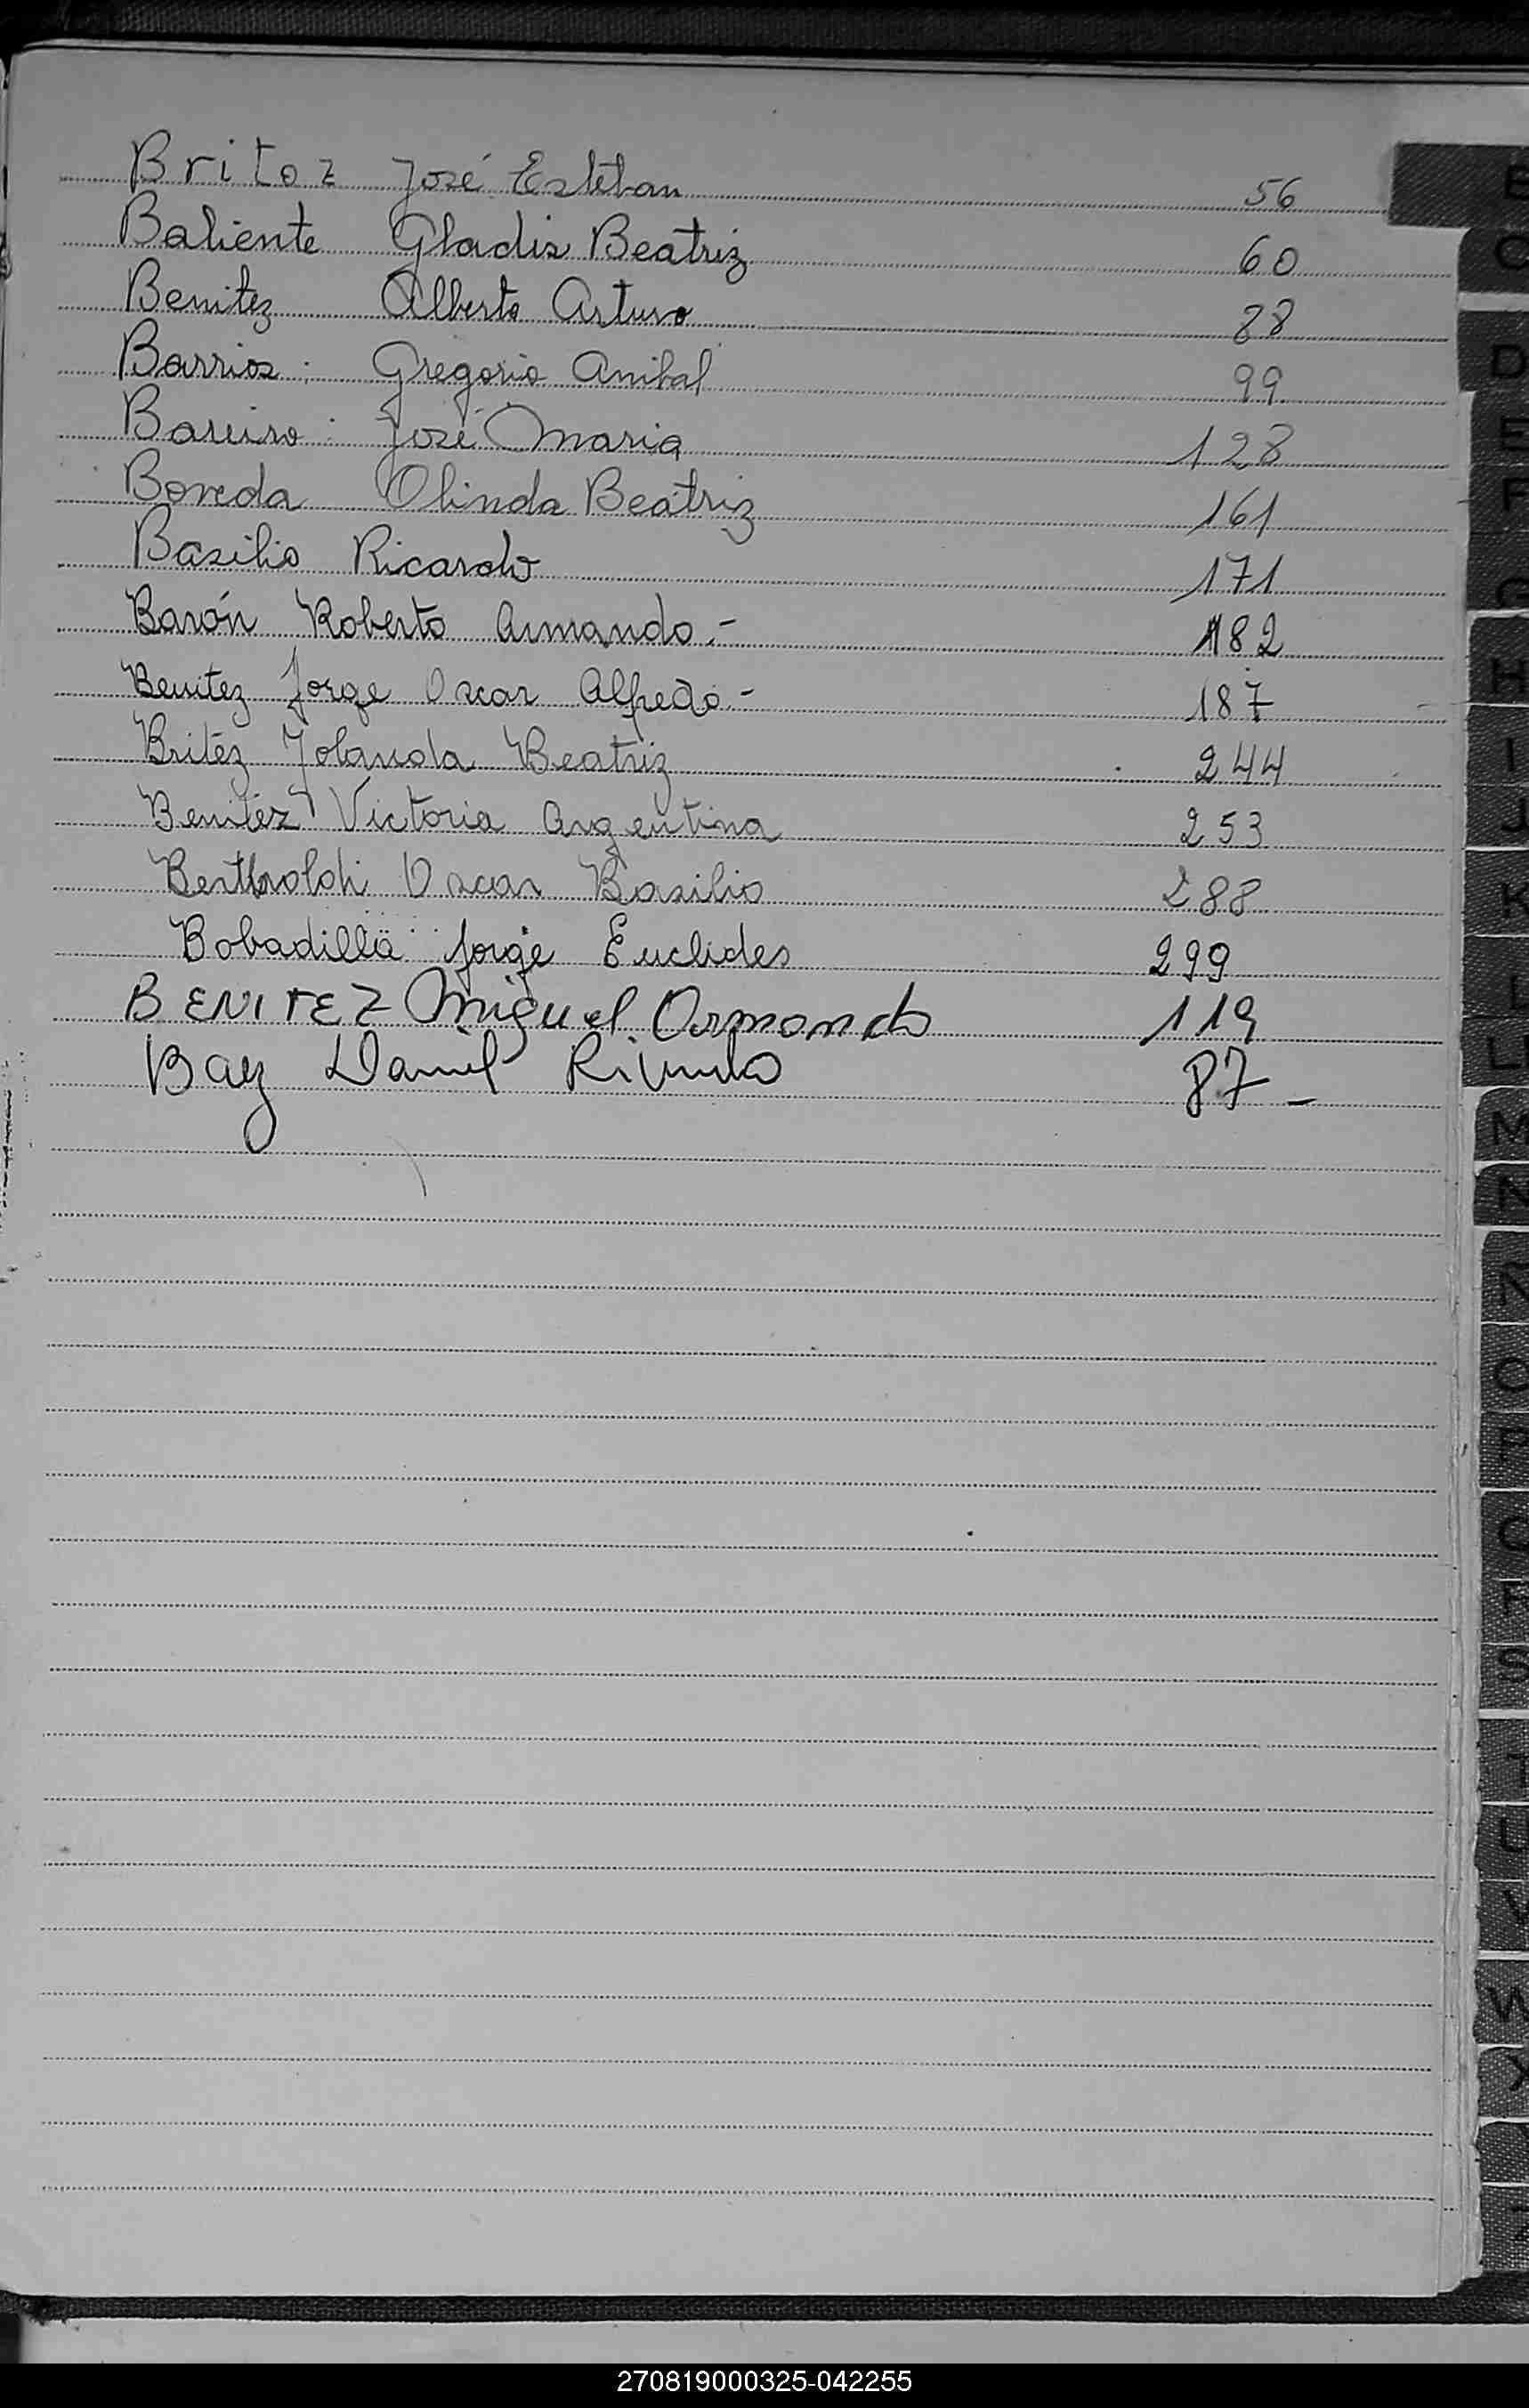 Britoz José Esteban 56
Baliente Gladis Beatriz 60
Benitez Alberto Arturo 88
Barrios: Gregorio Anibal 99
Bareiro: José Maria 128
Boveda Olinda Beatriz 161
Basilio Ricardo 171
Barón Roberto Armando.- 182
Benitez Jorge Oscar Alfredo.- 187
Britez Yolanda Beatriz 244
Benitez Victoria Argentina 253
Oscar Basilio 288
Bobadilla Jorge Euclides 299
BENITEZ Miguel Armando 119
Baez Daniel 87-
B
C
D
E
F
G
H
I
J
K
L
LL
M
N
Ñ
O
P
Q
R
S
T
U
V
W
X
Y
Z
270819000325-042255